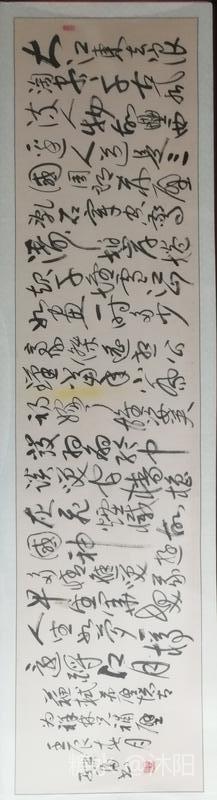 大江東去浪
淘盡千古風
流人物故壘西
邊人道是三
國周郎赤壁
亂石穿空驚
濤拍岸捲
起千堆雪江山
如畫一時多少
豪傑遙想公
瑾當年小喬
初嫁了雄姿英
發羽扇綸巾
談笑間檣櫓
灰飛煙滅故
國神遊
多情應笑我
早生華髮
人生如夢一樽
還酹江月
蘇軾赤壁懷古
壬辰七月
沐阳